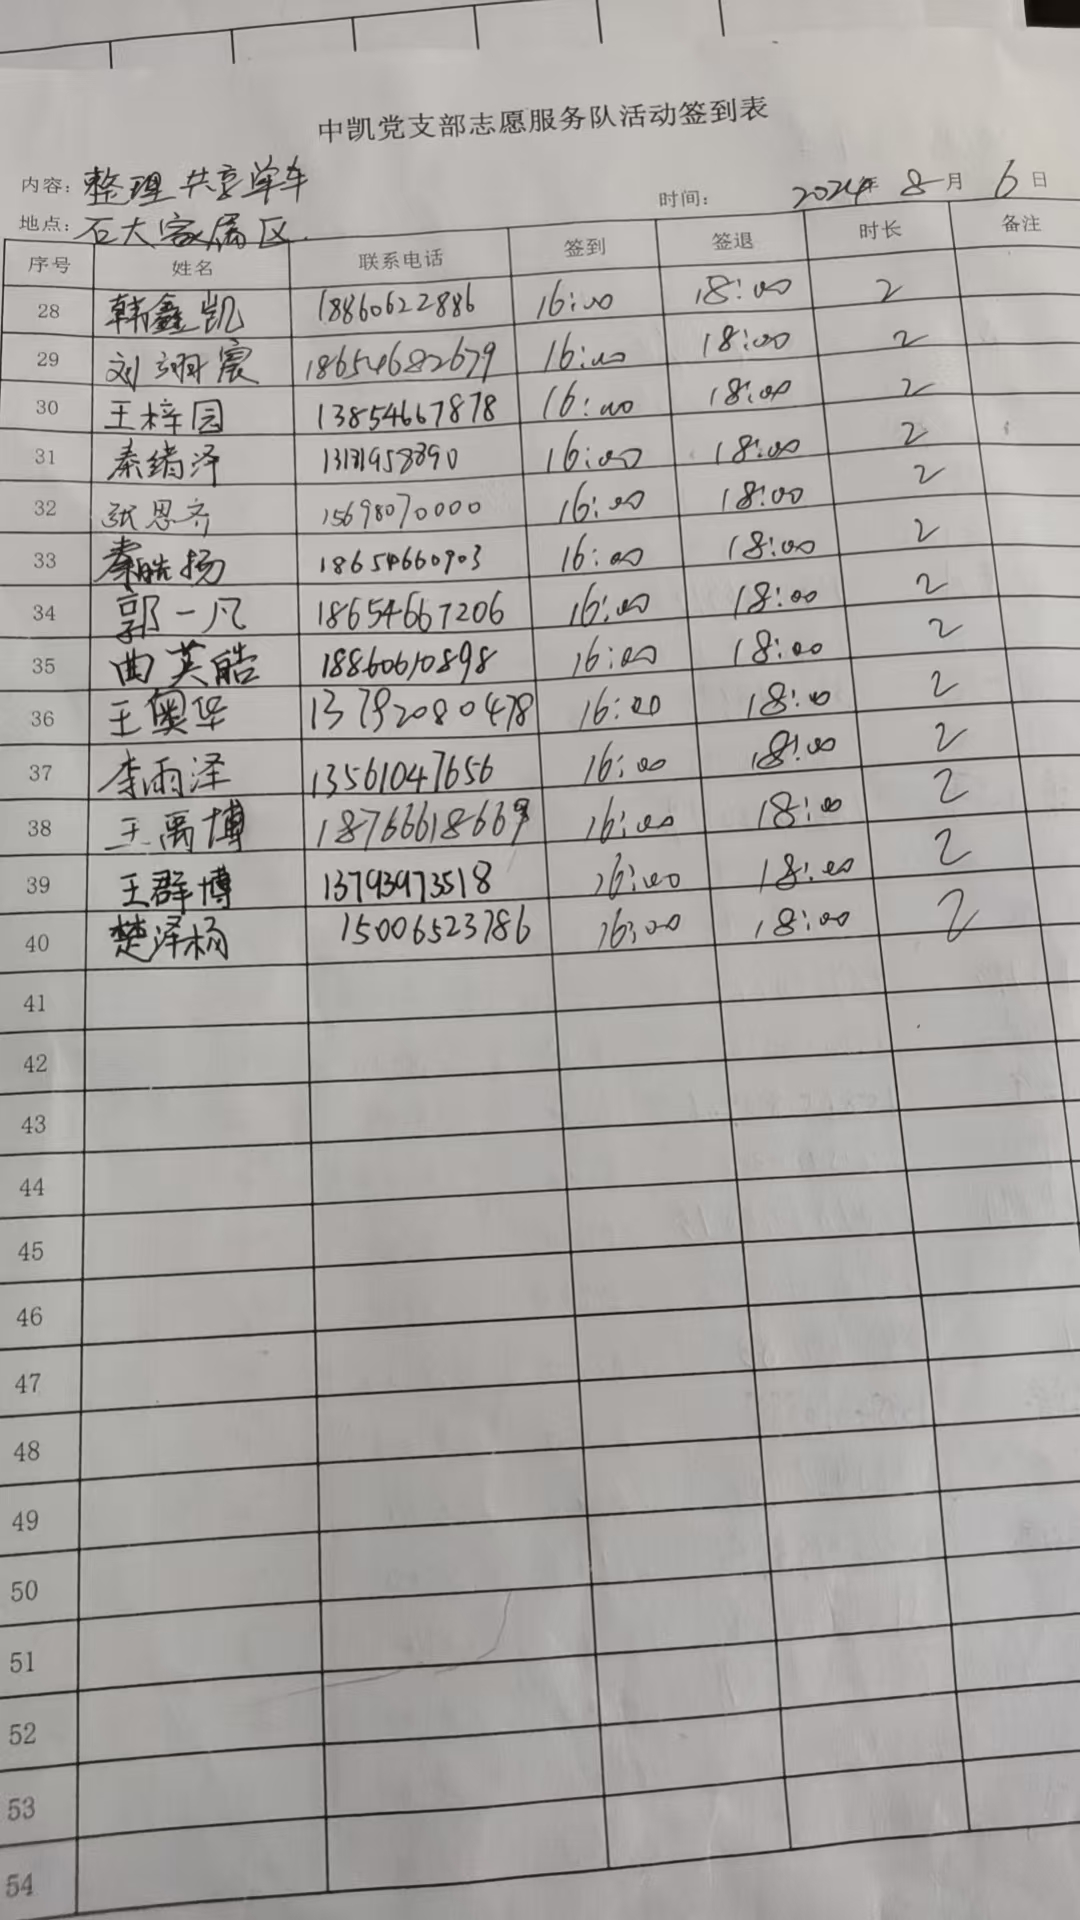 中凯党支部志愿服务队活动签到表
内容: 整理共享单车
时间: 2024年 8月 6日
地点: 石大家属区.
序号 姓名 联系电话 签到 签退 时长 备注
28 韩鑫凯 18860622886 16:00 18:00 2
29 刘翊宸 18654682679 16:00 18:00 2
30 王梓园 13854667878 16:00 18:00 2
31 秦绪泽 16:00 18:00 2
32 张思齐 15698070000 16:00 18:00 2
33 秦皓扬 18654660903 16:00 18:00 2
34 郭一凡 18654667206 16:00 18:00 2
35 曲英皓 18860610898 16:00 18:00 2
36 王奥华 13792080478 16:00 18:00 2
37 李雨泽 13561047656 16:00 18:00 2
38 王禹博 16:00 18:00 2
39 王群博 13793973518 16:00 18:00 2
40 楚泽杨 15006523786 16:00 18:00 2
41
42
43
44
45
46
47
48
49
50
51
52
53
54